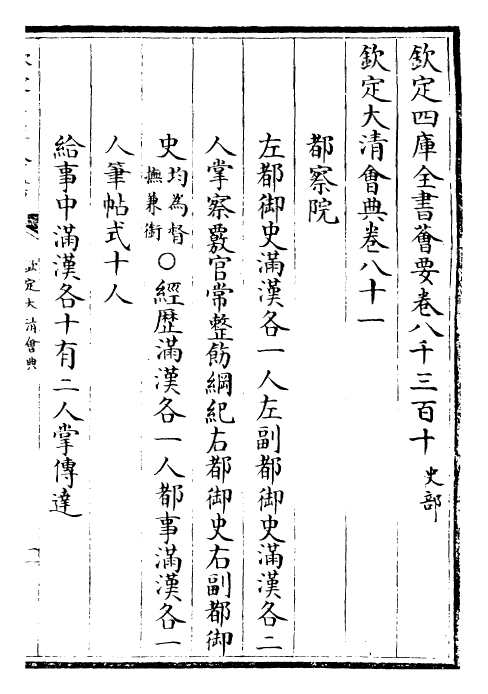 欽定四庫全書薈要卷八千三百十 史部
欽定大清會典卷八十一
都察院
左都御史滿漢各一人左副都御史滿漢各二
人掌察覈官常整飭綱紀右都御史右副都御
史均為督撫兼銜○經歴滿漢各一人都事滿漢各一
人筆帖式十人
給事中滿漢各十有二人掌傳達
欽定大清會典